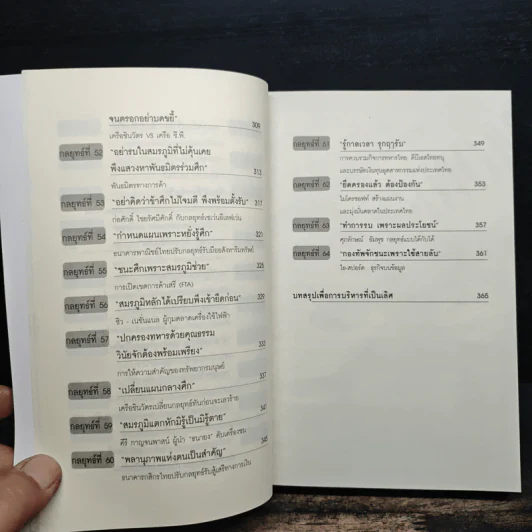 จนตรอกอย่าบดขยี้" 309
เครือชินวัตร VS เครือ ซี.พี.
กลยุทธ์ที่ 52 "อย่ารบในสมรภูมิที่ไม่คุ้นเคย
พึงแสวงหาพันธมิตรร่วมศึก" 313
พันธมิตรทางการค้า
กลยุทธ์ที่ 53 "อย่าคิดว่าข้าศึกไม่โจมตี พึงพร้อมตั้งรับ" 317
ก่อศักดิ์ ไชยรัศมีศักดิ์ กับกลยุทธ์เซเว่นอีเลฟเว่น
กลยุทธ์ที่ 54 "กำหนดแผนเพราะหยั่งรู้ศึก" 321
ธนาคารพาณิชย์ไทยปรับกลยุทธ์รับมืออสังหาริมทรัพย์
กลยุทธ์ที่ 55 "ชนะศึกเพราะสมรภูมิช่วย" 325
การเปิดเขตการค้าเสรี (FTA)
กลยุทธ์ที่ 56 "สมรภูมิหลักได้เปรียบพึงเข้ายึดก่อน" 329
ชิว - เนชั่นแนล ผู้กุมตลาดเครื่องใช้ไฟฟ้า
กลยุทธ์ที่ 57 "ปกครองทหารด้วยคุณธรรม
วินัยจักต้องพร้อมเพรียง" 333
การให้ความสำคัญของทรัพยากรมนุษย์
กลยุทธ์ที่ 58 "เปลี่ยนแผนกลางศึก" 337
เครือชินวัตรเปลี่ยนกลยุทธ์ทันก่อนจะเลวร้าย
กลยุทธ์ที่ 59 "สมรภูมิแตกหักมิรู้เป็นมิรู้ตาย" 341
คีรี กาญจนพาสน์ ผู้นำ "ธนายง" ดับเครื่องชน
กลยุทธ์ที่ 60 "พลานุภาพแห่งตนเป็นสำคัญ" 345
ธนาคารกสิกรไทยปรับกลยุทธ์รับสู้เสรีทางการเงิน
กลยุทธ์ที่ 61 "รู้กาลเวลา รุกฤารับ" 349
การควบรวมกิจการทหารไทย ดีบีเอสไทยทนุ
และบรรษัทเงินทุนอุตสาหกรรมแห่งประเทศไทย
กลยุทธ์ที่ 62 "ยึดครองแล้ว ต้องป้องกัน" 353
ไมโครซอฟท์ สร้างแผนงาน
และมุ่งมั่นตลาดในประเทศไทย
กลยุทธ์ที่ 63 "ทำการรบ เพราะผลประโยชน์" 357
ศุภลักษณ์ อัมพุช กลยุทธ์แบบได้กับได้
กลยุทธ์ที่ 64 "กองทัพจักชนะเพราะใช้สายลับ" 361
ไอ-สปอร์ต ธุรกิจบนข้อมูล
บทสรุปเพื่อการบริหารที่เป็นเลิศ 365